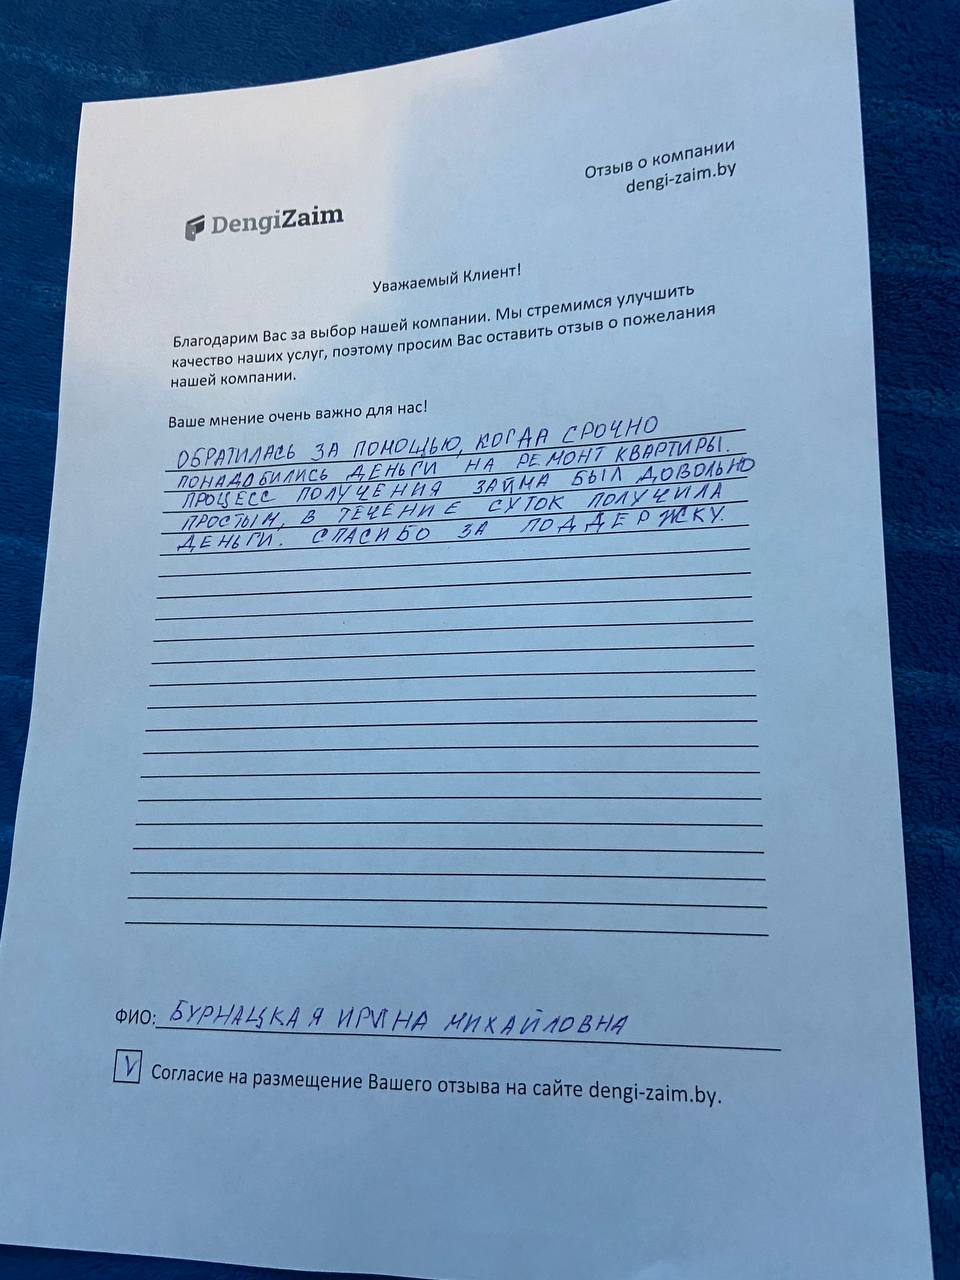 Отзыв о компании
dengi-zaim.by
DengiZaim
Уважаемый Клиент!
Благодарим Вас за выбор нашей компании. Мы стремимся улучшить
качество наших услуг, поэтому просим Вас оставить отзыв о пожелания
нашей компании.
Ваше мнение очень важно для нас!
ОБРАТИЛАСЬ ЗА ПОМОЩЬЮ, КОГДА СРОЧНО
ПОНАДОБИЛИСЬ ДЕНЬГИ НА РЕМОНТ КВАРТИРЫ.
ПРОЦЕСС ПОЛУЧЕНИЯ ЗАЙМА БЫЛ ДОВОЛЬНО
ПРОСТЫМ, В ТЕЧЕНИЕ СУТОК ПОЛУЧИЛА
ДЕНЬГИ. СПАСИБО ЗА ПОДДЕРЖКУ.
ФИО: БУРНАЦКАЯ ИРИНА МИХАЙЛОВНА
V Согласие на размещение Вашего отзыва на сайте dengi-zaim.by.